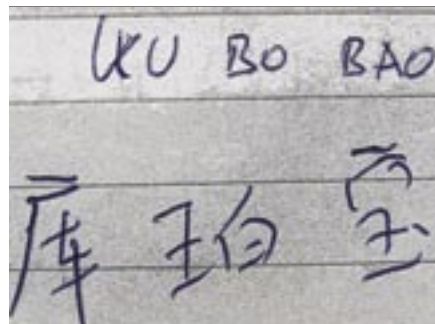 KU BO BAO
库珀宝